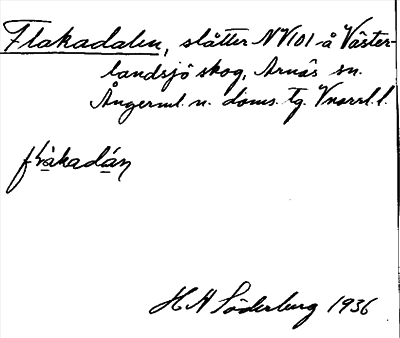 Flakadalen, slåtter NV101 å Väster-
landsjö skog, Arnäs sn.
Ångerml. n. doms. tg. Vnorrl. l.
flakadán
H A Söderberg 1936